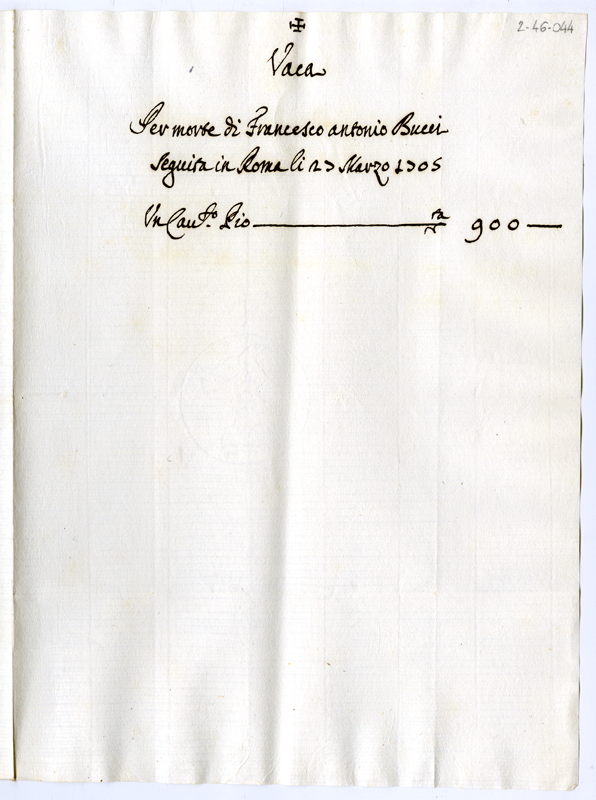 2-46-044
Vaca
Per morte di Francesco antonio Bucci
seguita in Roma li 27 Marzo 1705
Un Cau.to Pio 900